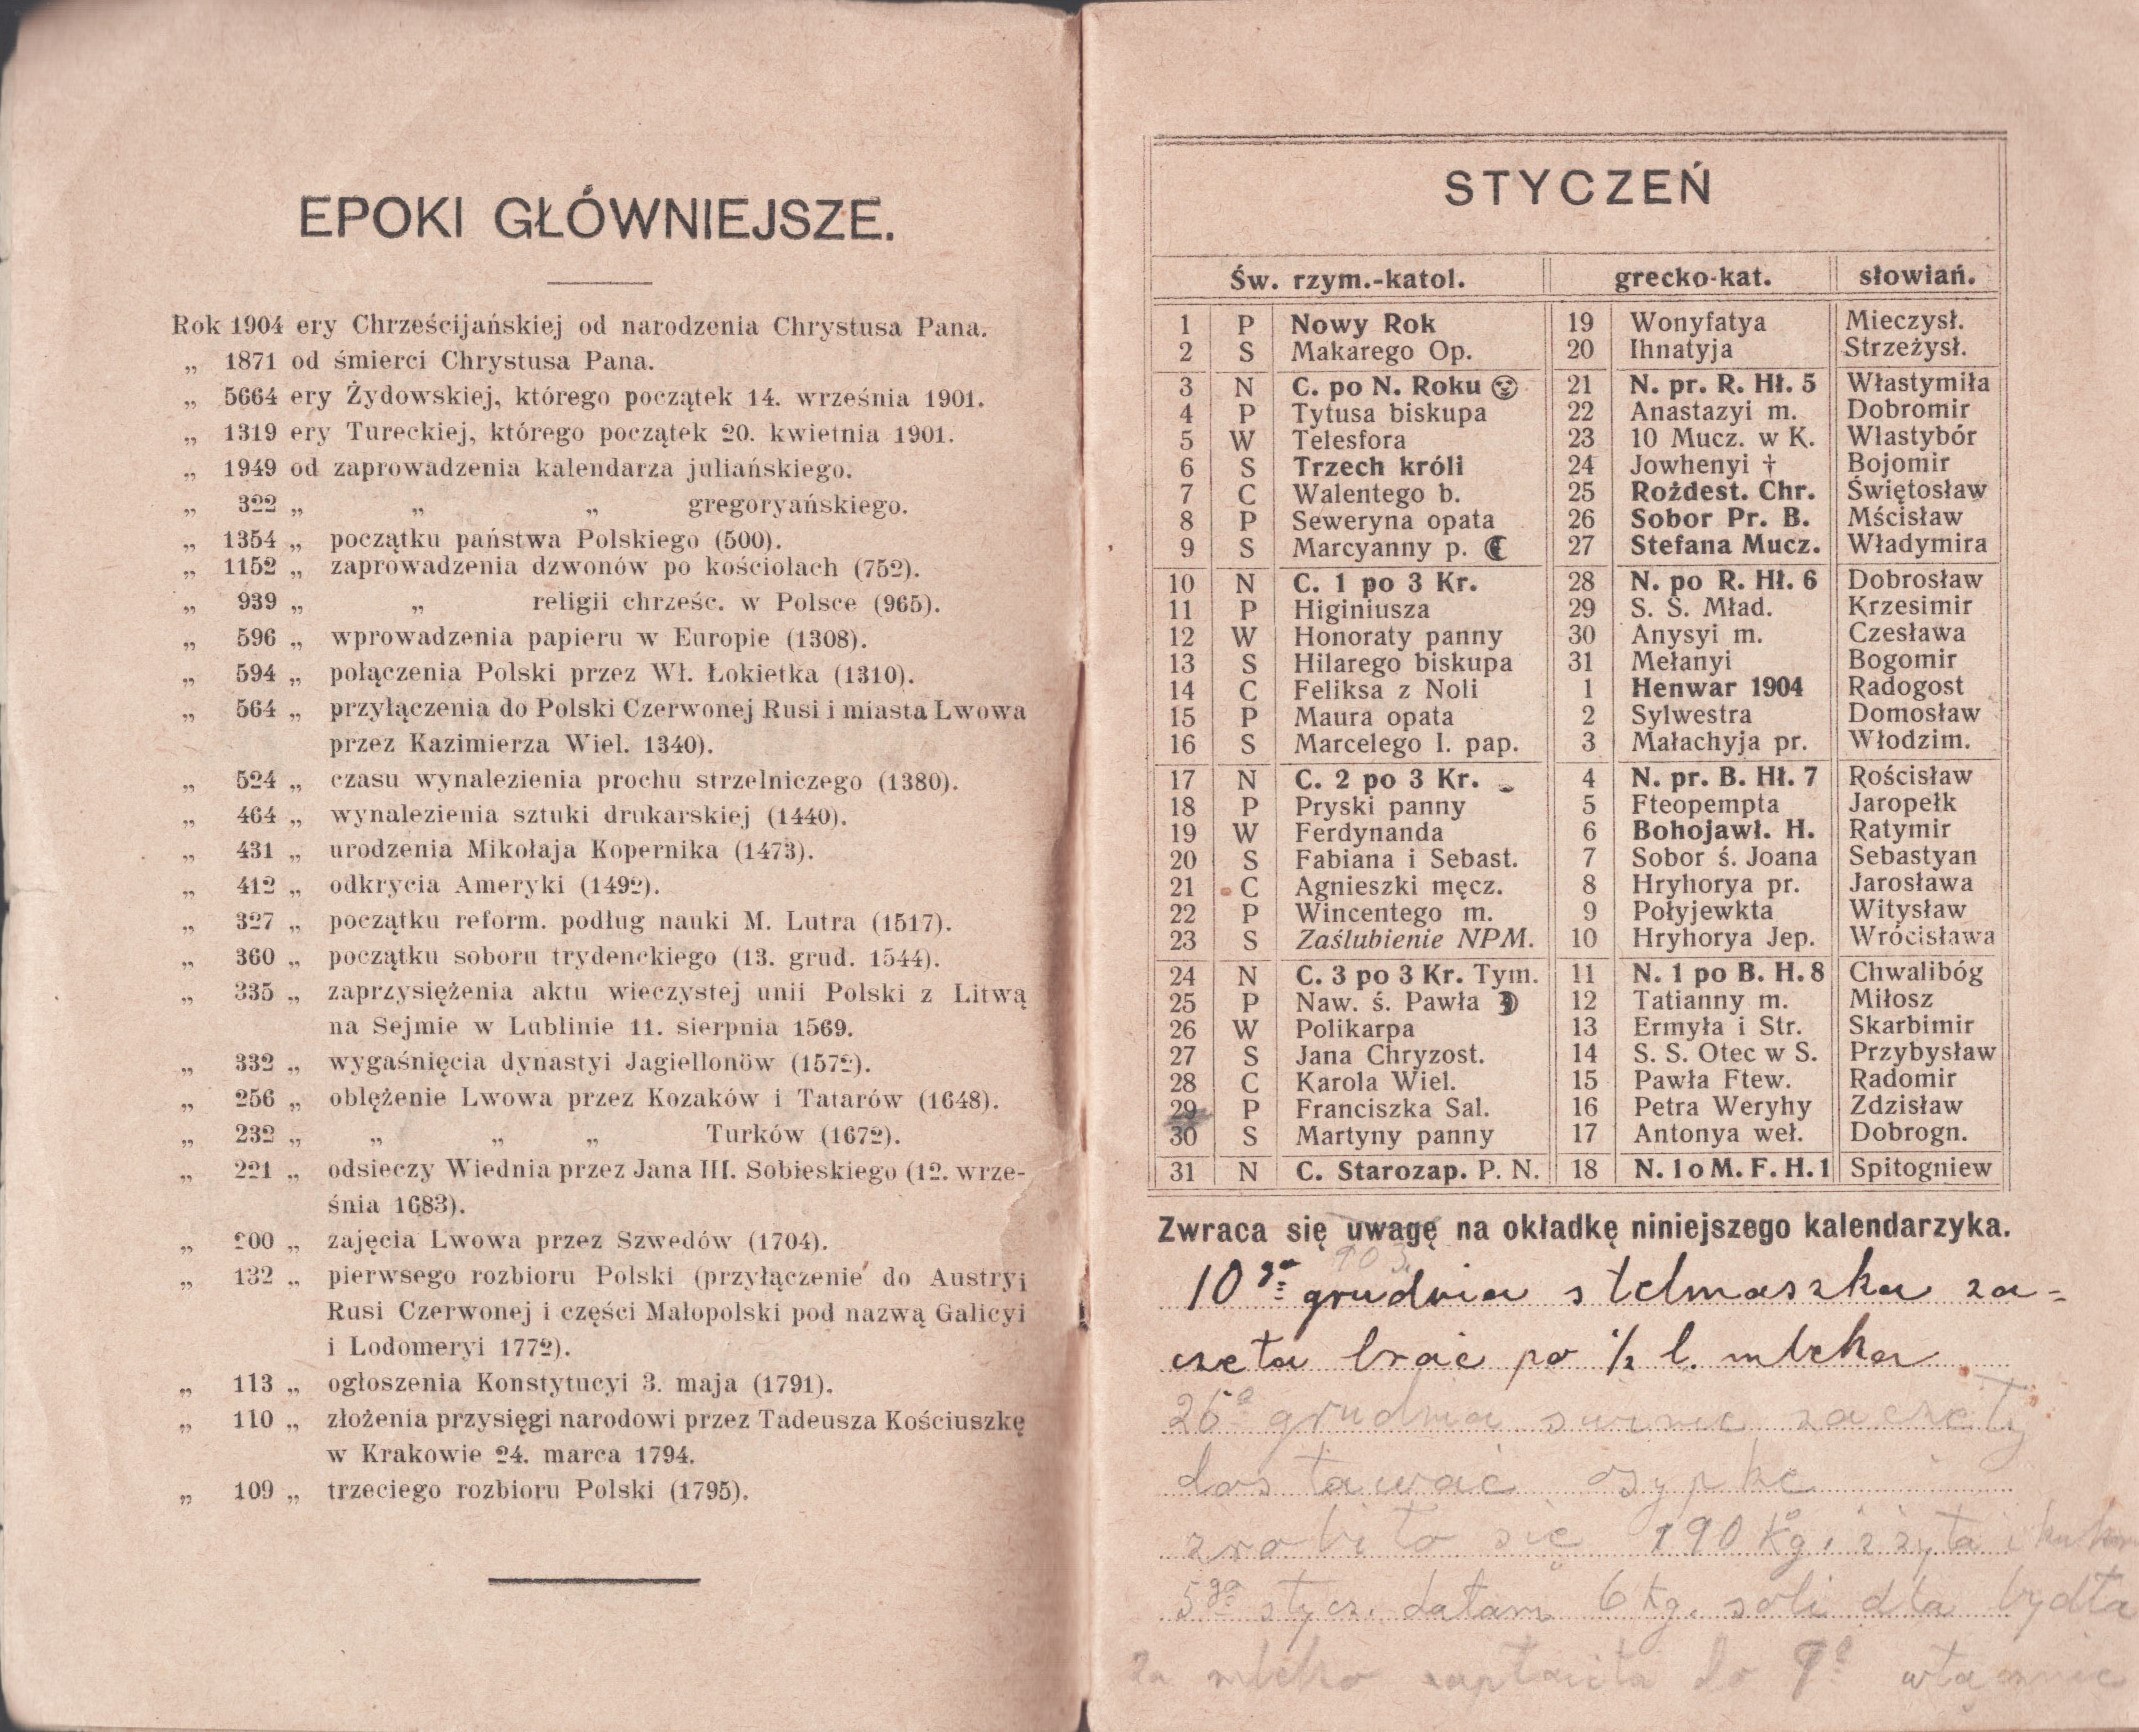 EPOKI GŁÓWNIEJSZE.
Rok 1904 ery Chrześcijańskiej od narodzenia Chrystusa Pana.
„ 1871 od śmierci Chrystusa Pana.
„ 5664 ery Żydowskiej, którego początek 14. września 1901.
„ 1319 ery Tureckiej, którego początek 20. kwietnia 1901.
„ 1949 od zaprowadzenia kalendarza juliańskiego.
„ 322 „ „ „ gregoryańskiego.
„ 1354 „ początku państwa Polskiego (500).
„ 1152 „ zaprowadzenia dzwonów po kościolach (752).
„ 939 „ „ religii chrześc. w Polsce (965).
„ 596 „ wprowadzenia papieru w Europie (1308).
„ 594 „ połączenia Polski przez Wł. Łokietka (1310).
„ 564 „ przyłączenia do Polski Czerwonej Rusi i miasta Lwowa
przez Kazimierza Wiel. 1340).
„ 524 „ czasu wynalezienia prochu strzelniczego (1380).
„ 464 „ wynalezienia sztuki drukarskiej (1440).
„ 431 „ urodzenia Mikołaja Kopernika (1473).
„ 412 „ odkrycia Ameryki (1492).
„ 327 „ początku reform. podług nauki M. Lutra (1517).
„ 360 „ początku soboru trydenckiego (13. grud. 1544).
„ 335 „ zaprzysiężenia aktu wieczystej unii Polski z Litwą
na Sejmie w Lublinie 11. sierpnia 1569.
„ 332 „ wygaśnięcia dynastyi Jagiellonów (1572).
„ 256 „ oblężenie Lwowa przez Kozaków i Tatarów (1648).
„ 232 „ „ „ „ Turków (1672).
„ 221 „ odsieczy Wiednia przez Jana III. Sobieskiego (12. wrze-
śnia 1683).
„ 200 „ zajęcia Lwowa przez Szwedów (1704).
„ 132 „ pierwsego rozbioru Polski (przyłączenie do Austryi
Rusi Czerwonej i części Małopolski pod nazwą Galicyi
i Lodomeryi 1772).
„ 113 „ ogłoszenia Konstytucyi 3. maja (1791).
„ 110 „ złożenia przysięgi narodowi przez Tadeusza Kościuszkę
w Krakowie 24. marca 1794.
„ 109 „ trzeciego rozbioru Polski (1795).
STYCZEŃ
Św. rzym.-katol. grecko-kat. słowiań.
1 P Nowy Rok 19 Wonyfatya Mieczysł.
2 S Makarego Op. 20 Ihnatyja Strzeżysł.
3 N C. po N. Roku 21 N. pr. R. Hł. 5 Włastymiła
4 P Tytusa biskupa 22 Anastazyi m. Dobromir
5 W Telesfora 23 10 Mucz. w K. Wlastybór
6 S Trzech króli 24 Jowhenyi † Bojomir
7 C Walentego b. 25 Rożdest. Chr. Świętosław
8 P Seweryna opata 26 Sobor Pr. B. Mścisław
9 S Marcyanny p. 27 Stefana Mucz. Władymira
10 N C. 1 po 3 Kr. 28 N. po R. Hł. 6 Dobrosław
11 P Higiniusza 29 S. S. Mład. Krzesimir
12 W Honoraty panny 30 Anysyi m. Czesława
13 S Hilarego biskupa 31 Mełanyi Bogomir
14 C Feliksa z Noli 1 Henwar 1904 Radogost
15 P Maura opata 2 Sylwestra Domosław
16 S Marcelego I. pap. 3 Małachyja pr. Włodzim.
17 N C. 2 po 3 Kr. 4 N. pr. B. Hł. 7 Rościsław
18 P Pryski panny 5 Fteopempta Jaropełk
19 W Ferdynanda 6 Bohojawł. H. Ratymir
20 S Fabiana i Sebast. 7 Sobor ś. Joana Sebastyan
21 C Agnieszki męcz. 8 Hryhorya pr. Jarosława
22 P Wincentego m. 9 Połyjewkta Witysław
23 S Zaślubienie NPM. 10 Hryhorya Jep. Wrócisława
24 N C. 3 po 3 Kr. Tym. 11 N. 1 po B. H. 8 Chwalibóg
25 P Naw. ś. Pawła 12 Tatianny m. Miłosz
26 W Polikarpa 13 Ermyła i Str. Skarbimir
27 S Jana Chryzost. 14 S. S. Otec w S. Przybysław
28 C Karola Wiel. 15 Pawła Ftew. Radomir
29 P Franciszka Sal. 16 Petra Weryhy Zdzisław
30 S Martyny panny 17 Antonya weł. Dobrogn.
31 N C. Starozap. P. N. 18 N. 1 o M. F. H. 1 Spitogniew
Zwraca się uwagę na okładkę niniejszego kalendarzyka.
903.
10go grudnia stelmaszka za=
czeła brać po ½ l. mleka
26o grudnia swinie zaczeły
dostawać osypke
zrobiło się 190 Kg. z żyta i
5go stycz. dałam 6 Kg. soli dla bydła
za mleko zapłaciła do 9o włącznie